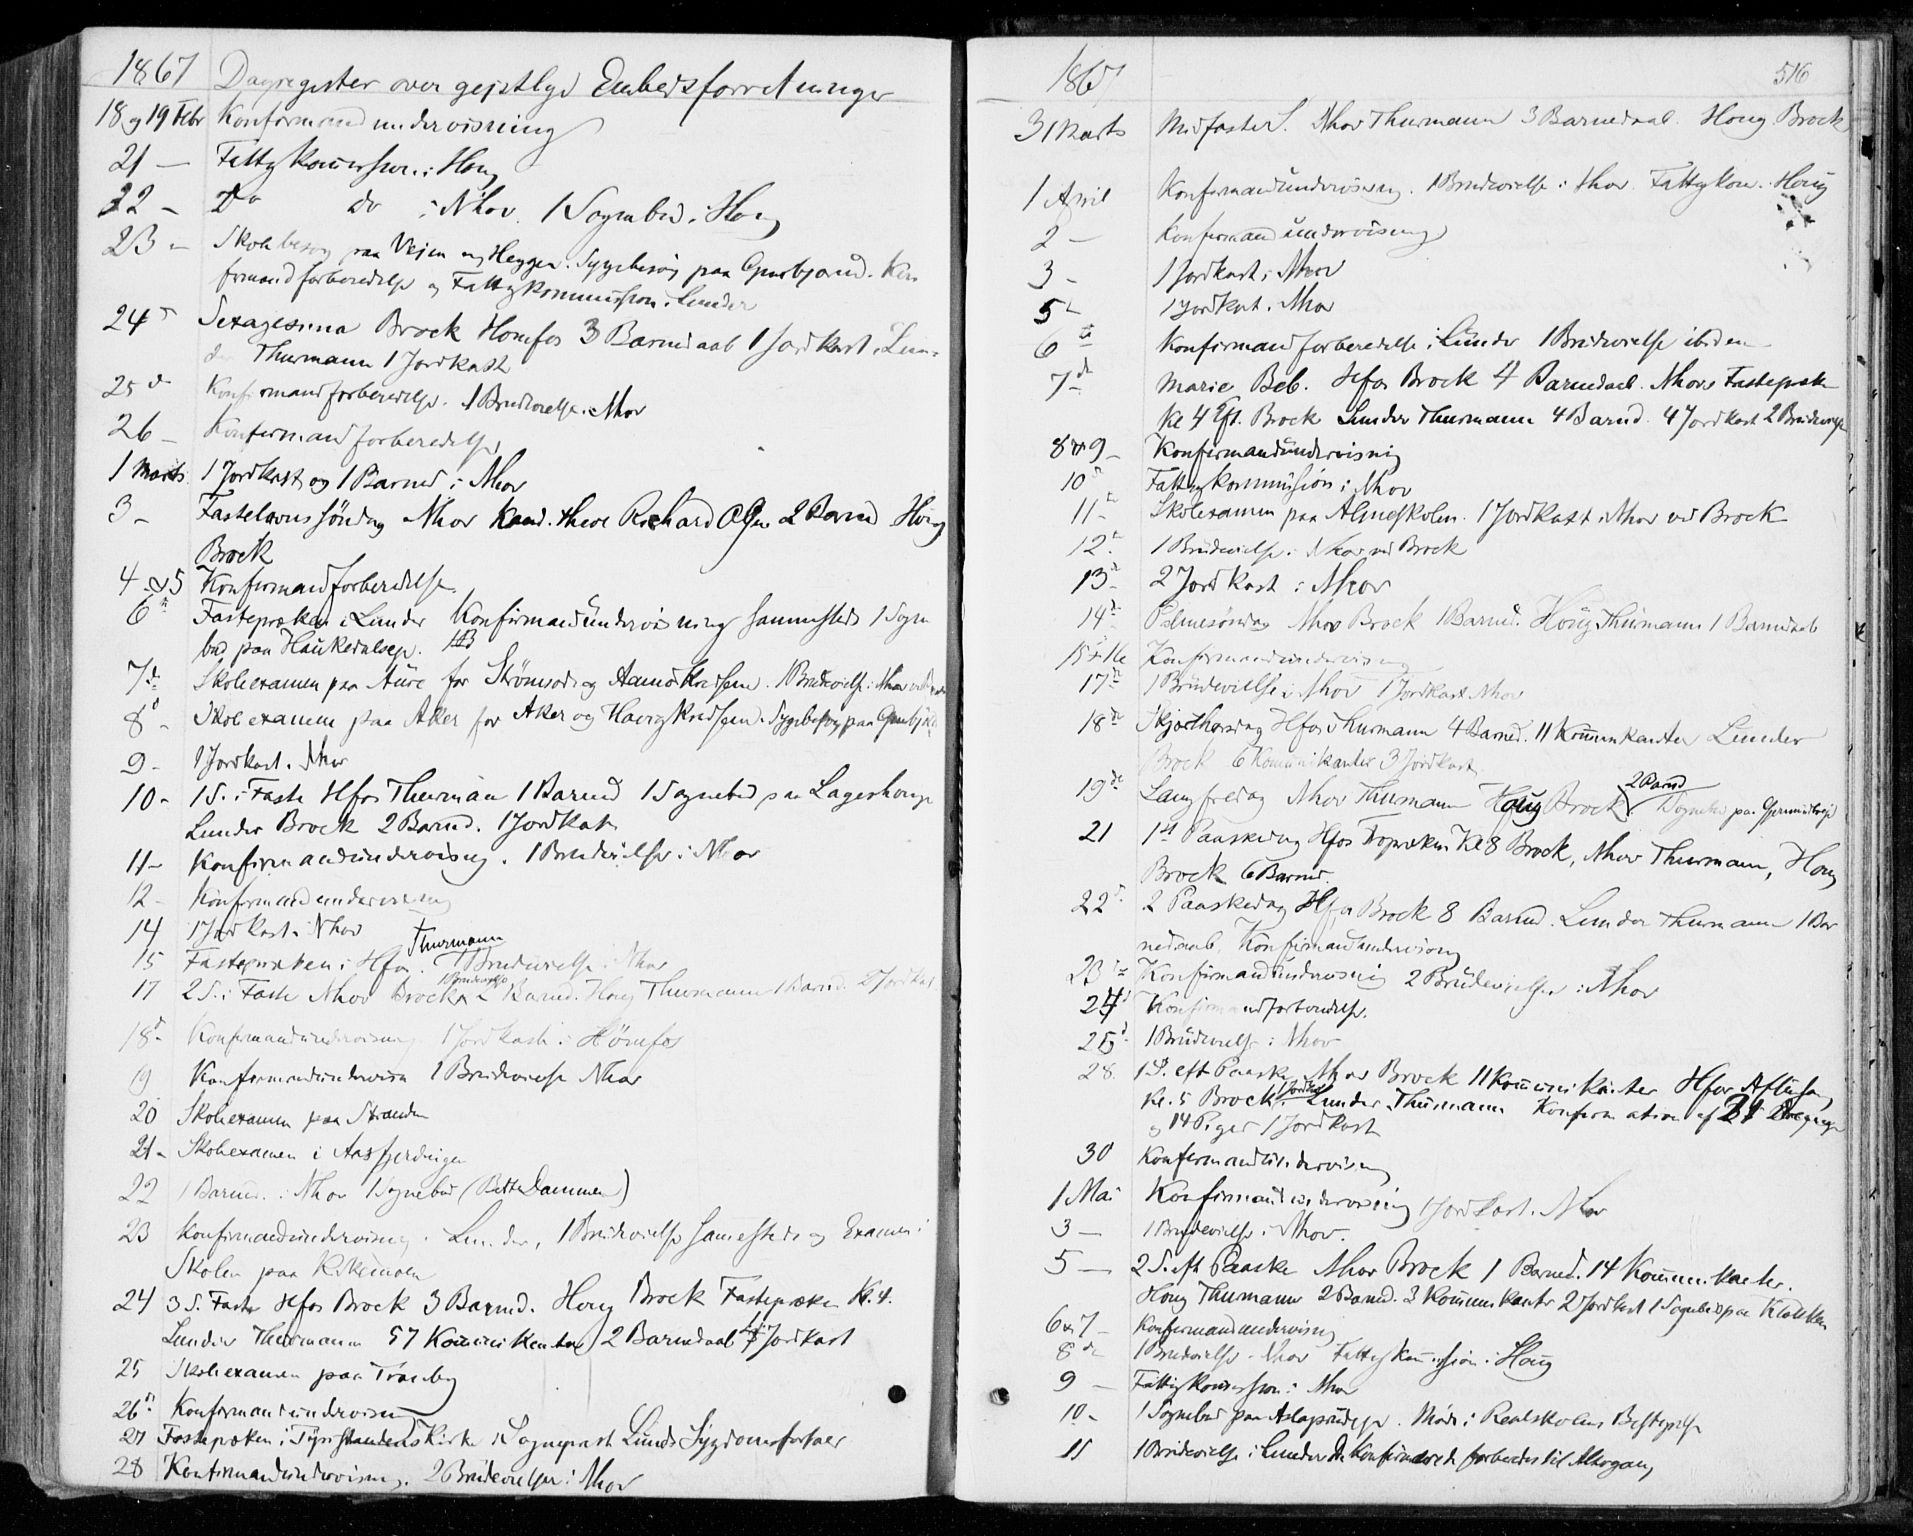 1867 Dagregister over gejstlige Embedsforretninger
18 og 19 Febr Konfirmandundervisning
21 — Fattigkommission i Houg
22 – Do do i Nhov. 1 Sognebud i Houg
23 – Skolebesøg paa Vejen og Heggen. Sygebesøg paa Kon
firmandforberedelse og Fattigkommission i Lunder
24 Sexagesima Brock Honefos 3 Barnedaab 1 Jordkast. Lun-
der Thurmann 1 Jordkast
25 Konfirmandforberedelse. 1 Brudevielse. Nhov
26 – Konfirmandforberedelse
1 Marts 1 Jordkast og 1 Barned i Nhov
3 – Fastelavnssöndag Nhov Kand. theol Richard Olsen 2 Barned Houg
Brock
4 & 5 Konfirmandforberedelse
6 Fastepræken i Lunder Konfirmandündervisning sammesteds 1 Sogne
bud paa
7 Skoleexamen paa Aure for Strømsods og Aamotkredsene. 1 Brudevielse i Nhov
8 – Skoleexamen paa Aker for Aker og Havigkredsene. Sygebesøg paa
9 – 1 Jordkast. Nhov
10 – 1 S. i Faste Hfos Thurmann 1 Barned 1 Sognebud paa
Lunder Brock 2 Barned. 1 Jordkast
11 – Konfirmandündervisng. 1 Brudevielse i Nhov
12 – Konfirmandundervisning
14 1 Jordkast i Nhov
15 Fastepræken i Hfos. Thurmann 1 Brudevielse i Nhov
17 2 S. i Faste Nhov Brock 1 Brudevielse 2 Barned. Houg Thurmann 1 Barned. 2 Jordkast
18 – Konfirmandundervisning 1 Jordkast i Hönefos
19 Konfirmandundervisn 1 Brudevielse Nhov
20 Skoleexamen paa Stranden
21 – Skoleexamen i Aasfjerdingen
22 1 Barned. i Nhov 1 Sognebud (Dammen)
23 Konfirmandundervisning i Lunder, 1 Brudevielse sammesteds og Examen i
Skolen paa
24 3 S. Faste Hfos Brock 3 Barned. Houg Brock Fastepræken Kl. 4.
Lunder Thurmann 57 Kommunikanter 2 Barnedaab Jordkast
25 Skoleexamen paa Tranby
26 Konfirmandundervisning
27 Fastepræken i Tyristrandens Kirke i Sogneprest Lunds Sygdomsforfald
28 Konfirmandundervisning. 2 Brudevielser i Nhov
1867 516
31 Marts Midfaste S. Nhov Thurmann 3 Barnedaab. Houg Brock
1 April Konfirmandündervisning. 1 Brudevielse i Nhov. Fattigkom. i Houg
2 — Konfirmandündervisning
3 – 1 Jordkast i Nhov
5 – 1 Jordkast. Nhov
6 Konfirmandforberedelse i Lunder 1 Brudevielse ibidem
7 Marie Beb. Hfos Brock 4 Barnedaab. Nhov Fastepræk
Kl 4 Eft. Brock Lunder Thurmann 4 Barned. 4 Jordkast 2 Brudevielse
8 & 9 – Konfirmandündervisnig
10 Fattigkommission i Nhov
11 Skoleexamen paa Almeskolen. 1 Jordkast i Nhov ved Brock
12 1 Brüdevielse i Nhov ved Brock
13 2 Jordkast i Nhov
14 Palmesöndag Nhov Brock 1 Barned. Houg Thurmann 1 Barnedaab
15 & 16 Konfirmandundervisning
17 1 Brüdevielse i Nhov 1 Jordkast Nhov
18 Skjærthorsdag Hfos Thurmann 4 Barned. 11 Kommunikanter Lunder
Brock 6 Kommunikanter 3 Jordkast
19 Langfredag Nhov Thurmann Houg Brock 2 Barned Sognebud paa
21 1st Paaskedag Hfos Froprækn Kl 8 Brock, Nhov Thurmann, Houg
Brock 6 Barned.
22 2 Paaskedag Hfos Brock 8 Barned. Lunder Thurmann 1 Bar
nedaab, Konfirmandundervisning
23 Konfirmandündervisning 2 Brüdevielser i Nhov
24 Konfirmandforberedelse.
25 1 Brüdevielse i Nhov
28. 1 S. eft Paaske Nhov Brock 11 Kommunikanter Hfos Aftensang
Kl. 5 Brock. 1 Jordkast Lunder Thurmann Konfirmation af 21 Drenge
og 14 Piger 1 Jordkast
30 Konfirmandundervisning
1 Mai Konfirmandundervisning 1 Jordkast. Nhov
3 — 1 Brudevielse i Nhov.
5 — 2 S. eft Paaske Nhov Brock 1 Barned. 14 Kommunikanter.
Houg Thurmann 2 Barned. 3 Kommunikantr 2 Jordkast 1 Sognebud paa Klækken
6 & 7 – Konfirmandundervisning
8 1 Brudevielse. Nhov Fattigkommission i Houg
9 — Fattigkommission i Nhov
10 – 1 Sognebud paa . Møde i Realskolens Bestyrelse
11 1 Brüdevielse i Lunder De Konfirmerede forberedes til Altergang